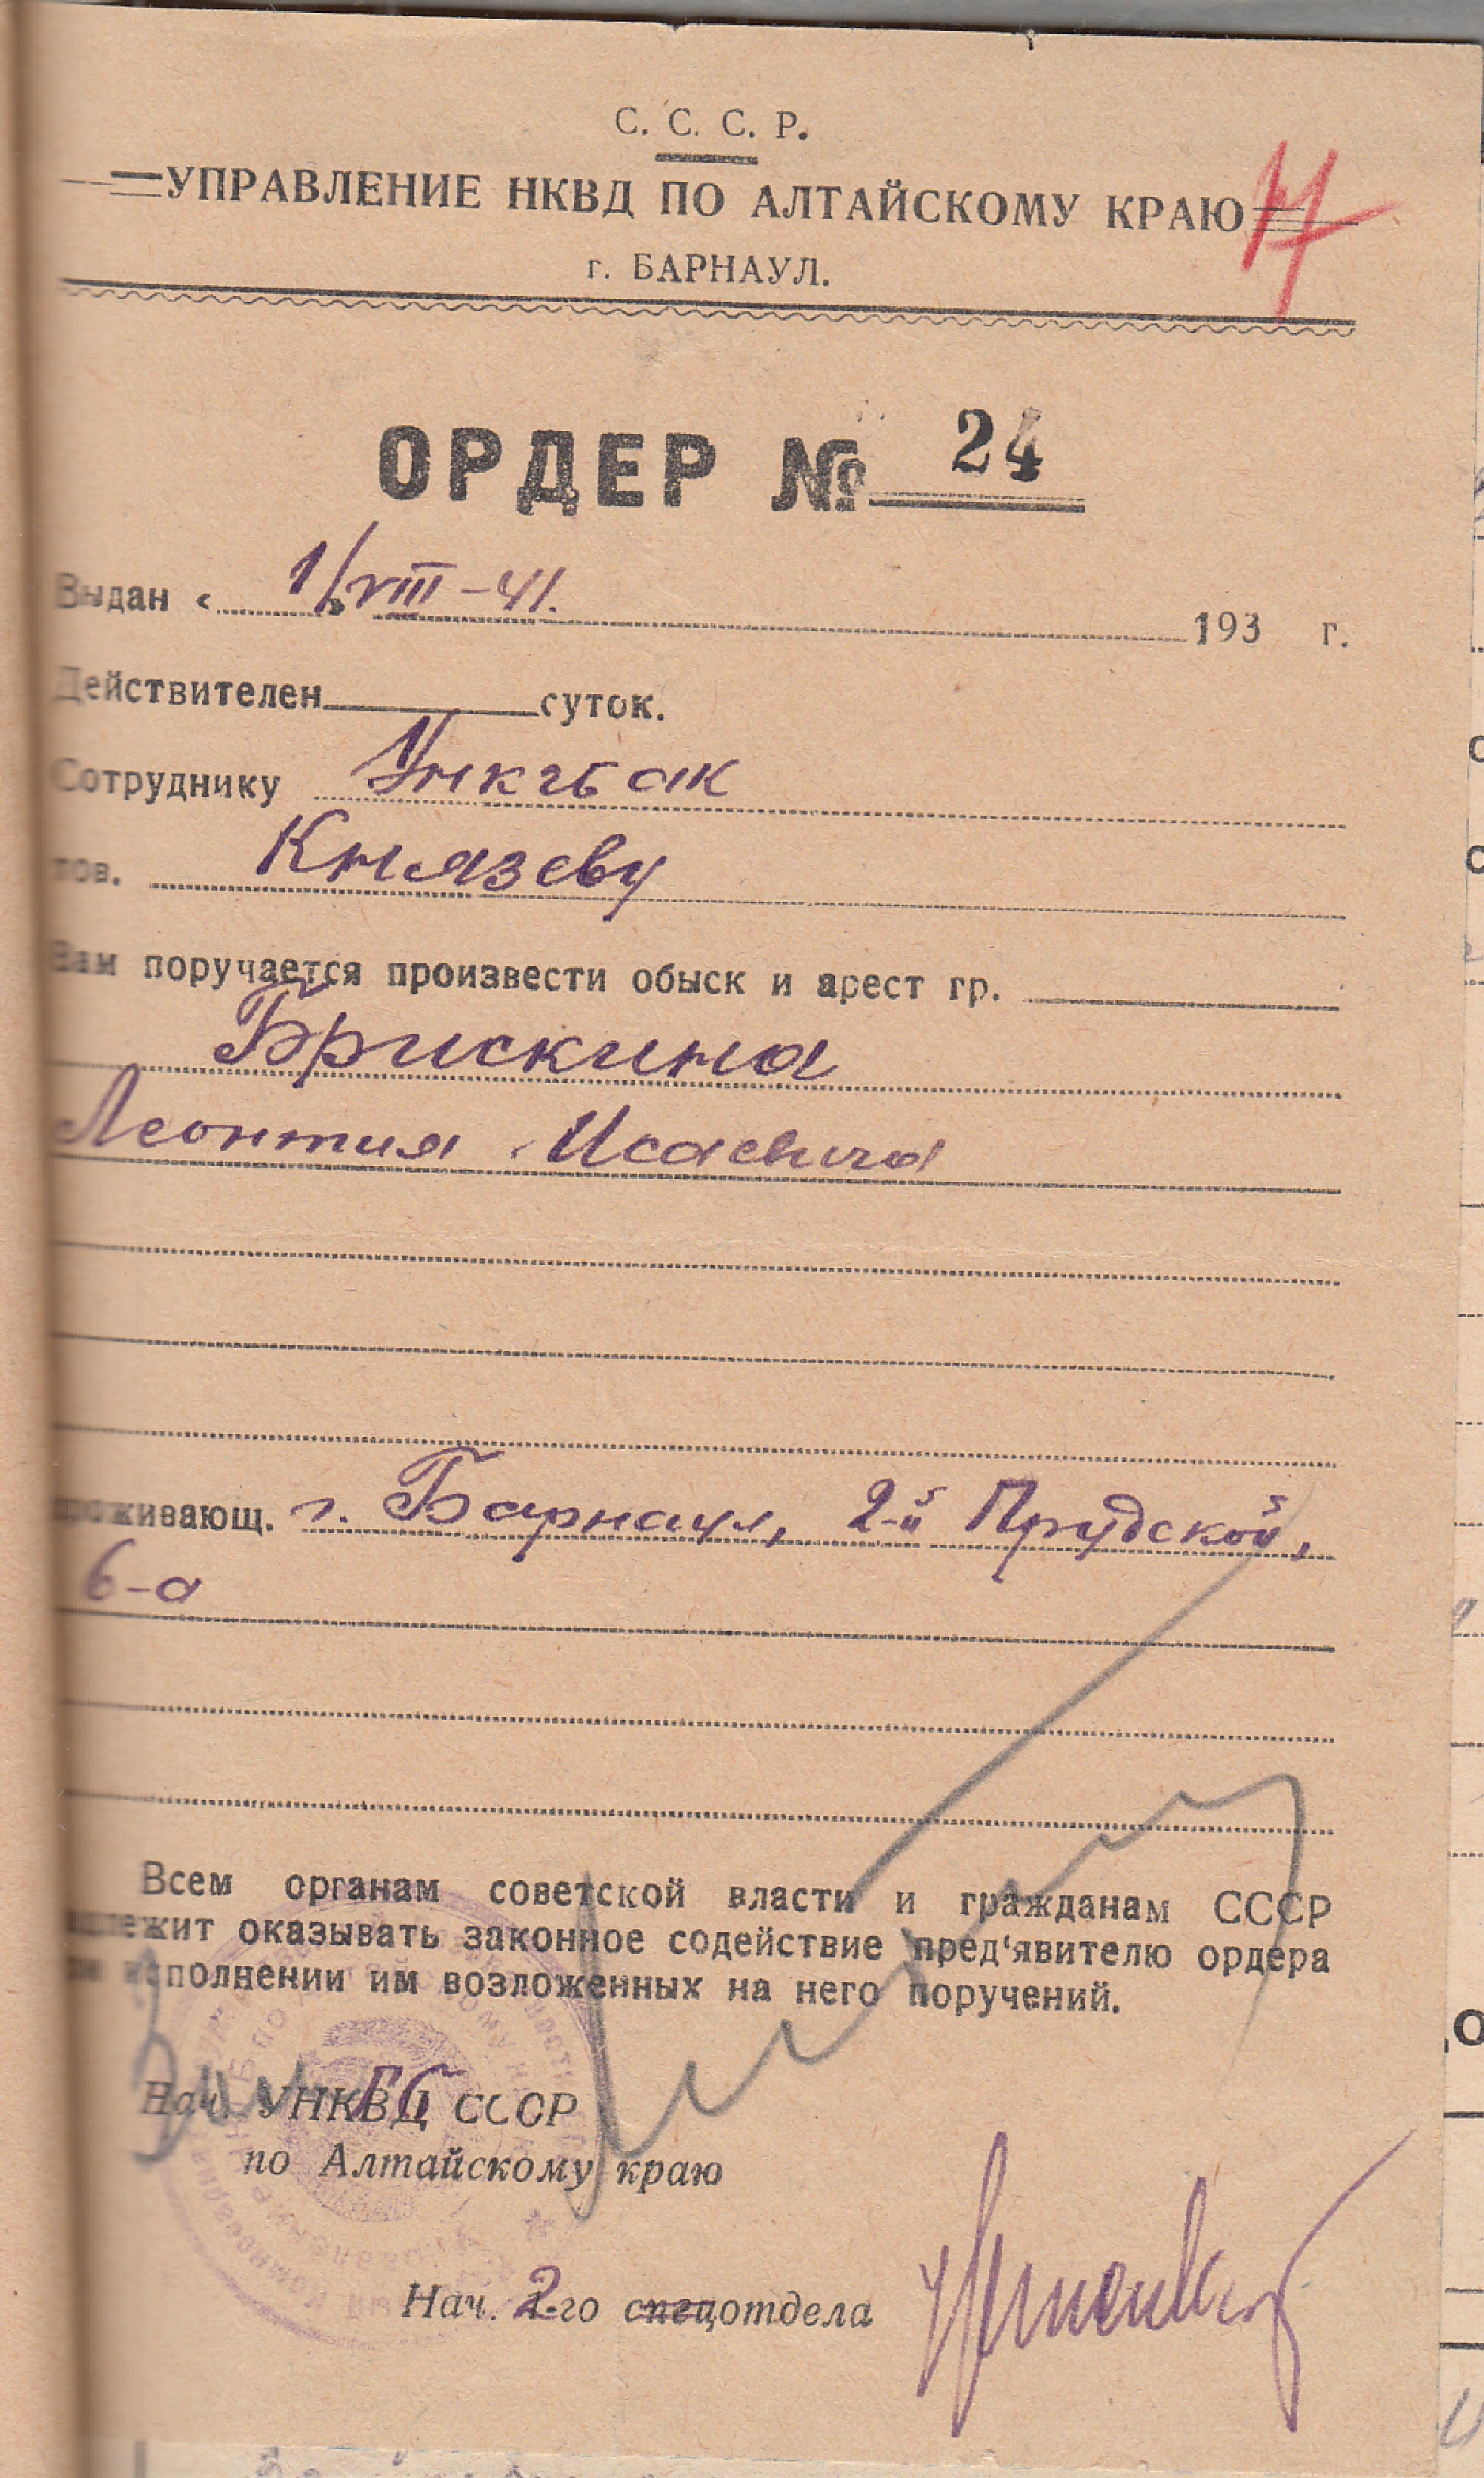 С. С. С. Р.
УПРАВЛЕНИЕ НКВД ПО АЛТАЙСКОМУ КРАЮ
г. БАРНАУЛ.
ОРДЕР № 24
Выдан « 1/VIII-41. » 193 г.
Действителен суток.
Сотруднику УНКГБ АК
тов. Князеву
Вам поручается произвести обыск и арест гр.
Брискина
Леонтия Исаевича
проживающ. г. Барнаул, 2-й Прудской,
6-а
Всем органам советской власти и гражданам СССР
надлежит оказывать законное содействие пред'явителю ордера
при исполнении им возложенных на него поручений.
Нач. УНКВД ГБ СССР
по Алтайскому краю
Нач. 2-го спецотдела